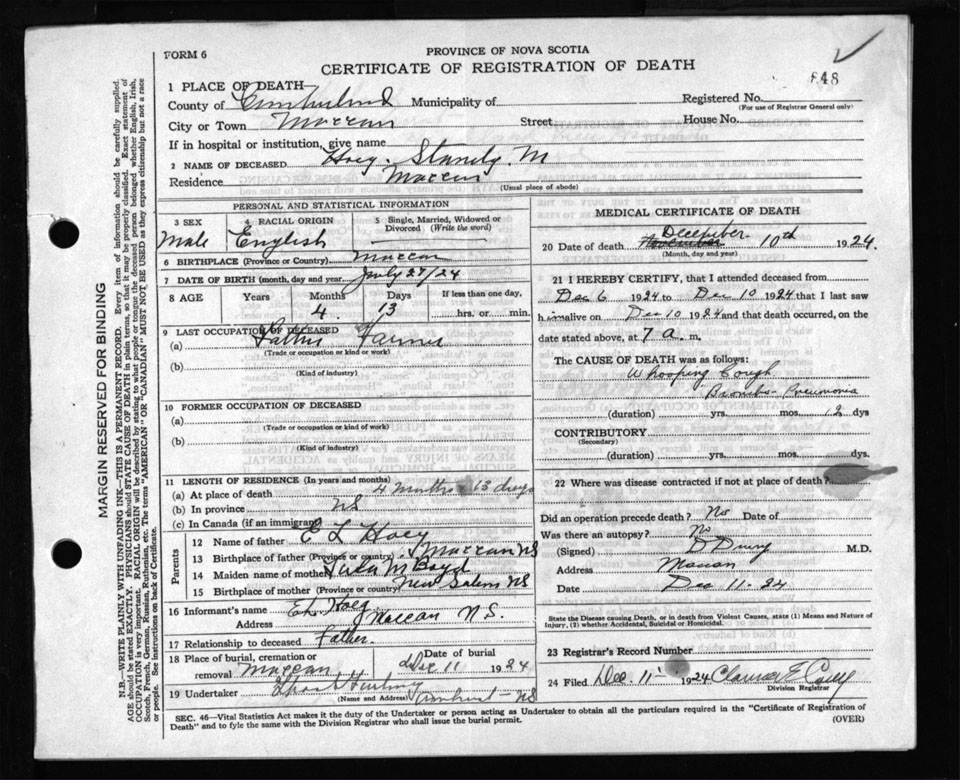 FORM 6
PROVINCE OF NOVA SCOTIA
CERTIFICATE OF REGISTRATION OF DEATH
48
MARGIN RESERVED FOR BINDING
N.B.—WRITE PLAINLY WITH UNFADING INK—THIS IS A PERMANENT RECORD. Every item of information should be carefully supplied.
AGE should be stated EXACTLY. PHYSICIANS should STATE CAUSE OF DEATH in plain terms, so that it may be properly classified. Exact statement of
OCCUPATION is very important. RACIAL ORIGIN will be described by stating to what people or tongue the deceased person belonged whether English, Irish,
Scotch, French, German, Russian, Ruthenian, etc. The terms "AMERICAN" OR "CANADIAN" MUST NOT BE USED as they express citizenship but not a race
or people. See instructions on back of Certificate.
1 PLACE OF DEATH
County of Cumberland Municipality of
Registered No.
(For use of Registrar General only)
City or Town Maccan Street House No.
If in hospital or institution, give name
2 NAME OF DECEASED Hoeg. Stanely M
Residence Maccan
(Usual place of abode)
PERSONAL AND STATISTICAL INFORMATION
3 SEX Male
4 RACIAL ORIGIN English
5 Single, Married, Widowed or Divorced (Write the word)
6 BIRTHPLACE (Province or Country) Maccan
7 DATE OF BIRTH (month, day and year) July 27/24
8 AGE Years Months 4 Days 13 If less than one day, hrs. or min.
9 LAST OCCUPATION OF DECEASED
(a) Father Farmer
(Trade or occupation or kind of work)
(b)
(Kind of industry)
10 FORMER OCCUPATION OF DECEASED
(a)
(Trade or occupation or kind of work)
(b)
(Kind of industry)
11 LENGTH OF RESIDENCE (In years and months)
(a) At place of death 4 months 13 days
(b) In province NS
(c) In Canada (if an immigrant)
Parents
12 Name of father E L Hoeg
13 Birthplace of father (Province or country) Maccan NS
14 Maiden name of mother M Boyd
15 Birthplace of mother (Province or country) New Salem NS
16 Informant's name Hoeg
Address Maccan N S.
17 Relationship to deceased Father
18 Place of burial, cremation or removal Maccan
Date of burial Dec 11 1924
19 Undertaker
(Name and Address) Amherst - NS
MEDICAL CERTIFICATE OF DEATH
December
20 Date of death November 10th 1924.
(Month, day and year)
21 I HEREBY CERTIFY, that I attended deceased from
Dec 6 1924 to Dec 10 1924 that I last saw
him alive on Dec 10 1924 and that death occurred, on the
date stated above, at 7 a. m.
The CAUSE OF DEATH was as follows:
Whooping Cough
Broncho Pneumonia
(duration) yrs. mos. 2 dys
CONTRIBUTORY
(Secondary)
(duration) yrs. mos. dys.
22 Where was disease contracted if not at place of death?
Did an operation precede death? No Date of
Was there an autopsy? No
(Signed) D M.D.
Address Maccan
Date Dec 11-24
State the Disease causing Death, or in death from Violent Causes, state (1) Means and Nature of
Injury, (2) whether Accidental, Suicidal or Homicidal.
23 Registrar's Record Number
24 Filed Dec. 11- 1924 Clarence E
Division Registrar
SEC. 46—Vital Statistics Act makes it the duty of the Undertaker or person acting as Undertaker to obtain all the particulars required in the "Certificate of Registration of
Death" and to fyle the same with the Division Registrar who shall issue the burial permit.
(OVER)